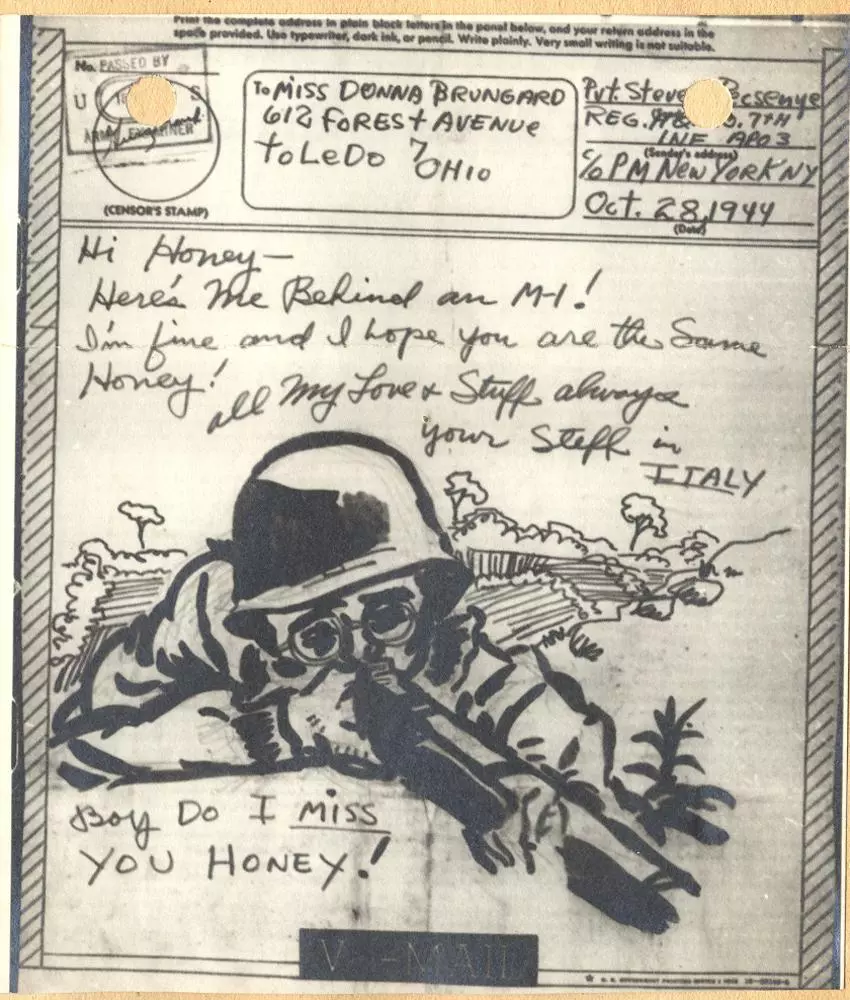 Print the complete address in plain block letters in the panel below, and your return address in the
space provided. Use typewriter, dark ink, or pencil. Write plainly. Very small writing is not suitable.
No.
PASSED BY
U S
ARMY EXAMINER
(CENSOR'S STAMP)
To MISS DONNA BRUNGARD
612 FOREST AVENUE
TOLEDO 7
OHIO
Pvt. Steve
REG. 7TH
INF APO 3
(Sender's address)
c/o PM NEW YORK NY
Oct. 28, 1944
(Date)
Hi Honey—
Here's Me Behind an M-1!
I'm fine and I hope you are the Same
Honey!
all My Love & Stuff always
your Steff in
ITALY
Boy Do I MISS
YOU HONEY!
V--MAIL